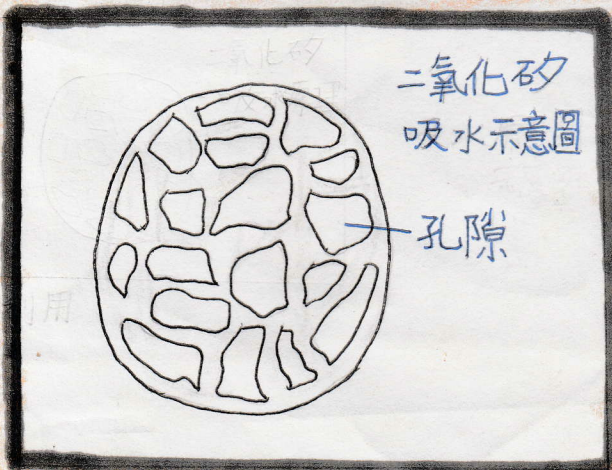 二氧化矽
吸水示意圖
孔隙